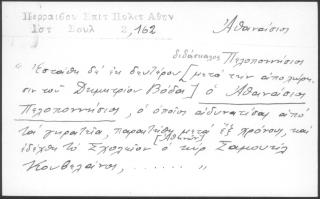 Περραιδου Επιτ Πολιτ Αθην
Ιστ Βουλ 2, 162
Ἀθανάσιος
διδάσκαλος Πελοποννήσιος
" Ἐστάθη δὲ ἐκ δευτέρου [μετὰ τὴν ἀποχώρη-
σιν τοῦ Δημητρίου Βόδα] ὁ Ἀθανάσιος
Πελοποννήσιος, ὁ ὁποῖος ἀδυνατίσας ἀπὸ
τὰ γηρατεῖα, παραιτήθη μετὰ ἓξ χρόνους, καὶ
[Ἀθηνῶν]
ἐδέχθη τὸ Σχολεῖον ὁ κὺρ Σαμουὴλ
Κουβελάνος, . . . . . . "